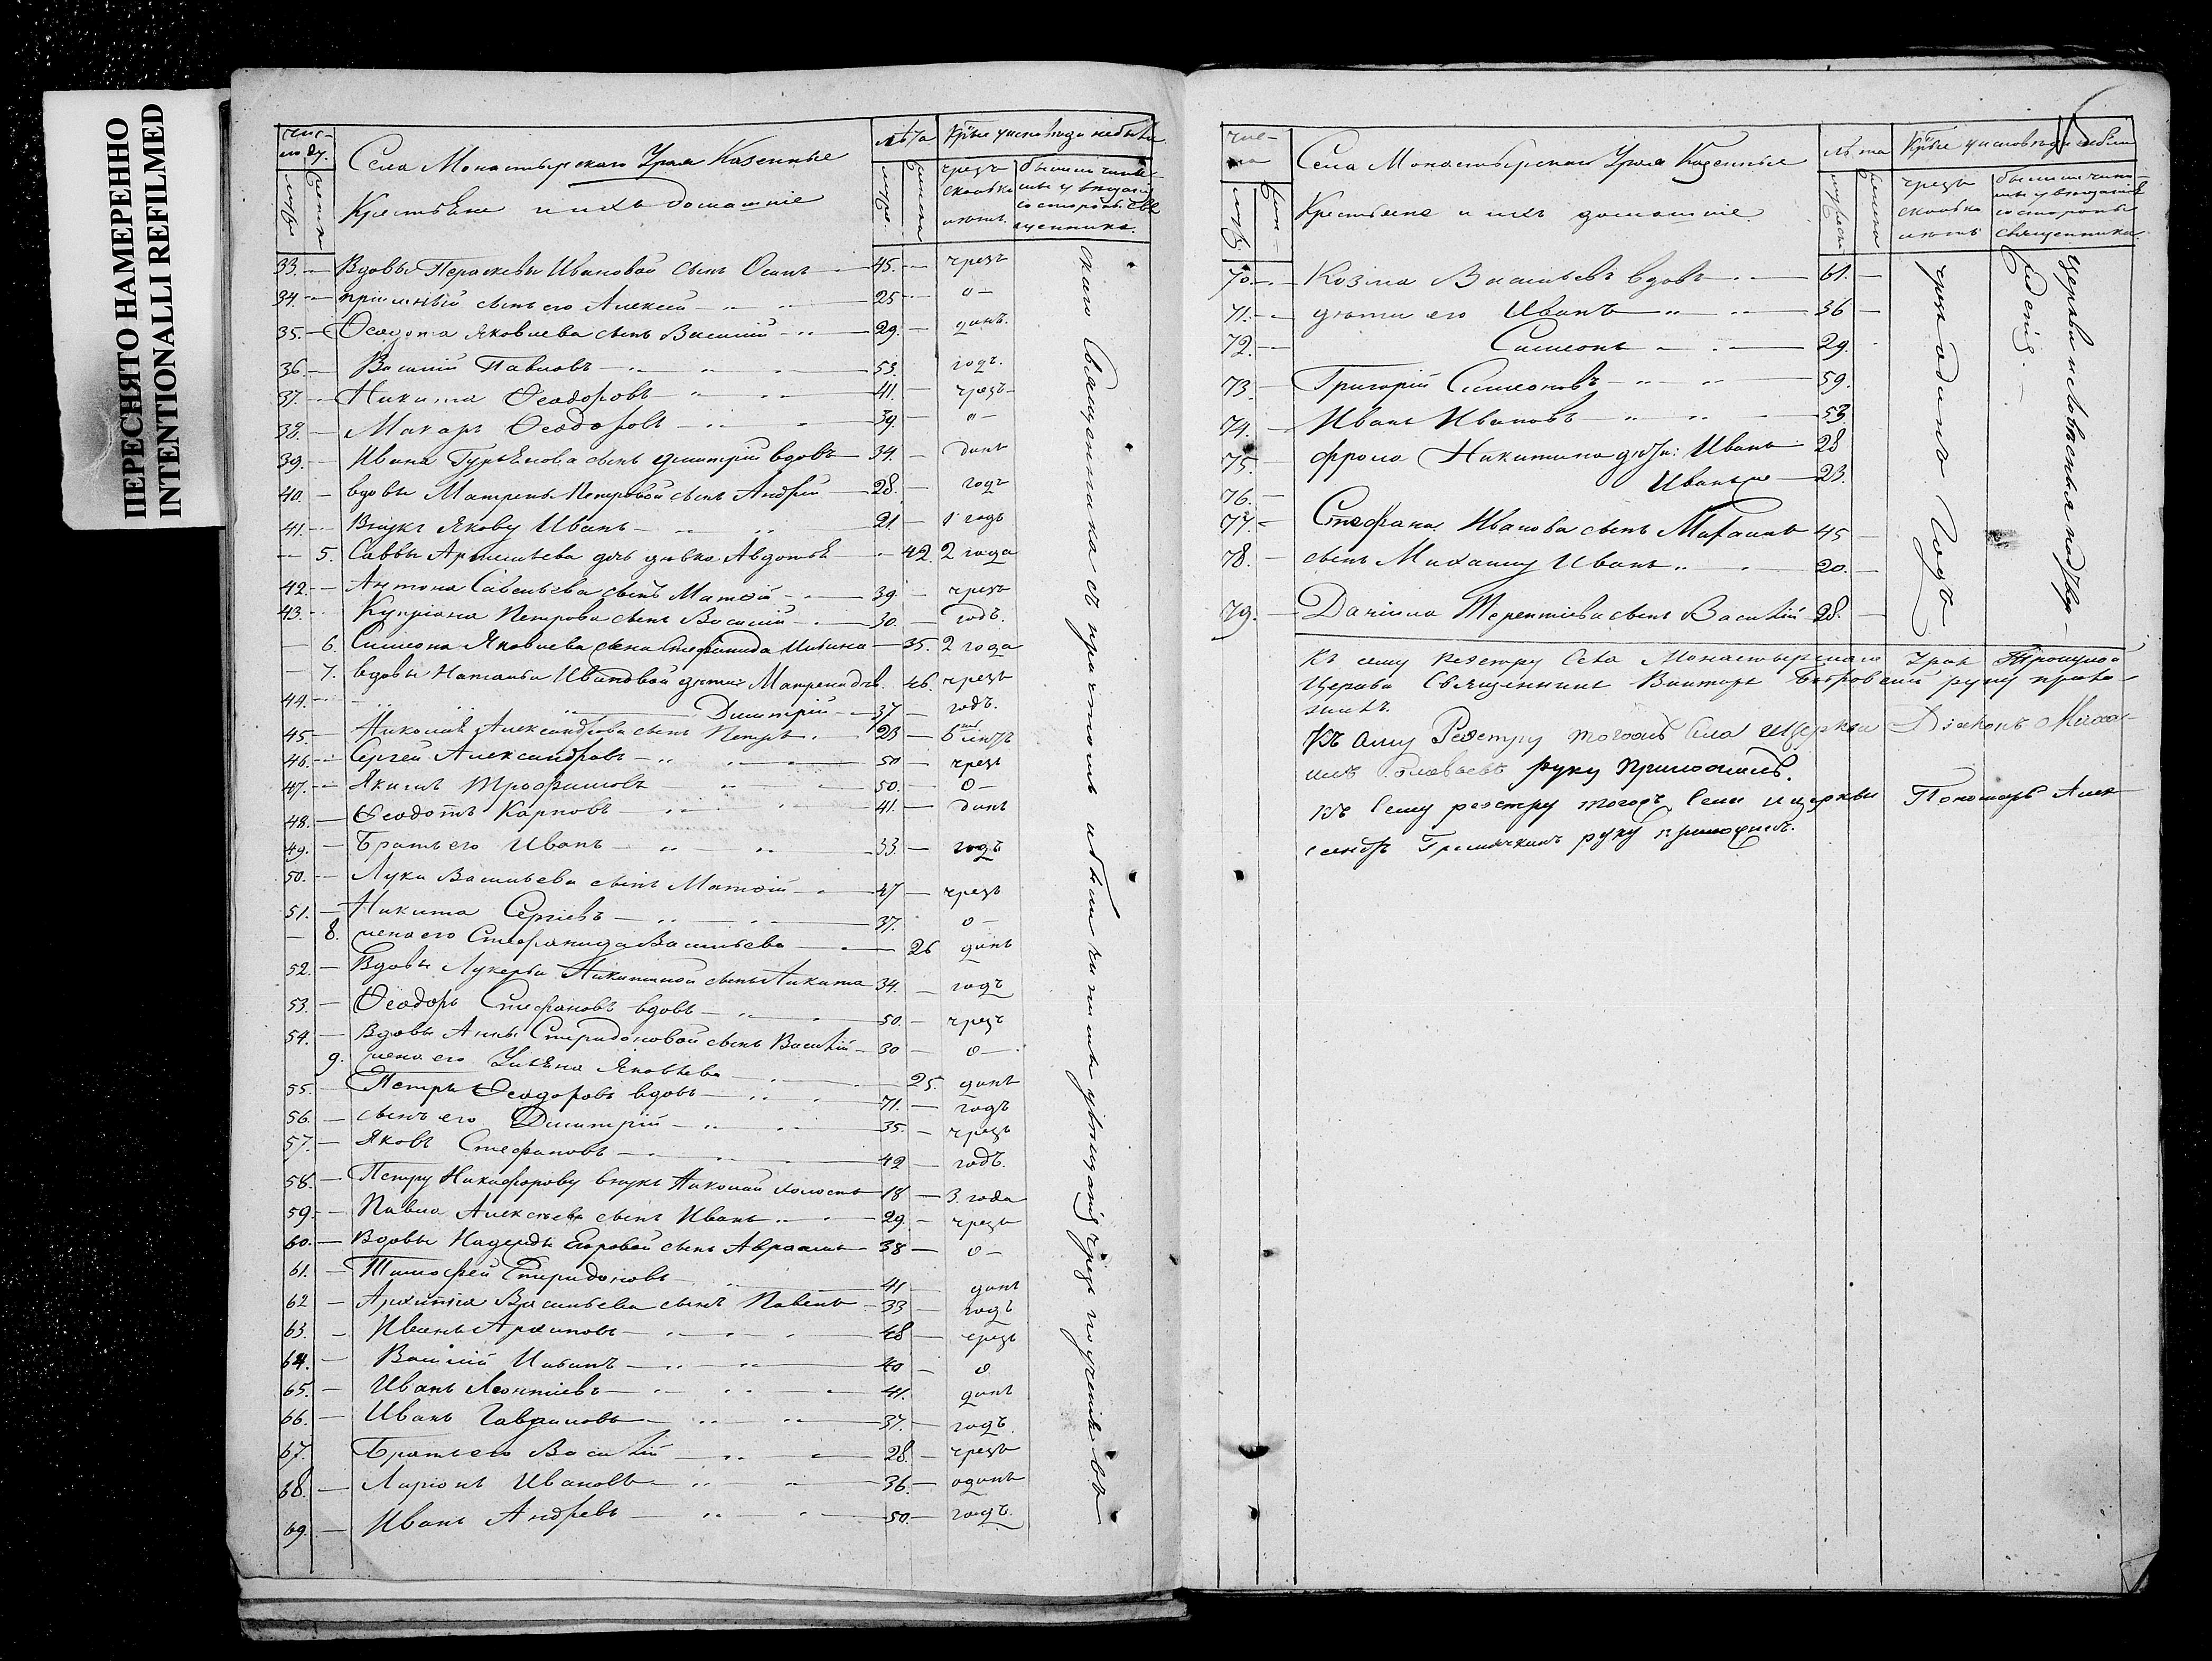 ПЕРЕСНЯТО НАМЕРЕННО
INTENTIONALLI REFILMED
Села Монастырскаго Урая Казенные
Крестьяне и ихъ домашніе
лѣта
чрезъ сколько лѣтъ.
33. — Вдовы Перасковьи Ивановой сынъ Осипъ — 45. — чрезъ
34. — пріемный сынъ его Алексей — 25 — о-
35. — Ѳеодота Яковлева сынъ Василій — 29. — динъ.
36 — Василій Павловъ — 53. годъ.
37. — Никита Ѳеодоровъ — 41. — чрезъ-
38. — Макаръ Ѳеодоровъ — 39. — о-
39. — Ивана Гурьянова сынъ Дмитрій вдовъ — 34. — динъ
40. — вдовы Матрены Петровой сынъ Андрей — 28. — годъ
41. — Внукъ Якову Иванъ — 21. — 1 годъ
— 5. Саввы Артемьева дочь дѣвка Авдотья — 42. 2 года
42. — Антона Савельева сынъ Матѳей — 39 — чрезъ
43. — Купріана Петрова сынъ Василій — 30. — годъ.
— 6. Симеона Яковлева жена Стефанида — 35. 2 года
— 7. вдовы Натальи Ивановой дѣти: Матрена — 46. чрезъ
44. — Димитрій — 37 — годъ.
45. — Николая Александрова сынъ Петръ — 23 — 6 лѣтъ
46. — Сергей Александровъ — 50 — чрезъ
47. — Якимъ Трофимовъ — 50. — о-
48. — Ѳеодотъ Карповъ — 41. — динъ
49. — Братъ его Иванъ — 33. — годъ
50. — Луки Васильева сынъ Матѳей — 47 — чрезъ
51. — Никита Сергіевъ — 37. о-
— 8. жена его Стефанида Васильева — 26 динъ
52. — Вдовы Лукерьи Никитиной сынъ Никита 34. — годъ
53. — Ѳеодоръ Стефановъ вдовъ — 50. — чрезъ
54. — Вдовы Анны Спиридоновой сынъ Василій — 30 — о-
9. жена его Ульяна Яковлева — 25. динъ
55. — Петръ Ѳеодоровъ вдовъ — 71. — годъ
56. — сынъ его Димитрій — 35. — чрезъ
57. — Яковъ Стефановъ — 42 — годъ.
58. — Петру Никифорову внукъ Николай холостъ 18 — 3. года
59. — Павла Алексѣева сынъ Иванъ — 29. — чрезъ
60. — Вдовы Надежды Егоровой сынъ Авраамъ — 38 — о-
61. — Тимофей Спиридоновъ — 41 — динъ
62 — Архипа Васильева сынъ Павелъ — 33 — годъ
63. — Иванъ Архиповъ — 48 — чрезъ
64. — Василій — 40 — о
65. — Иванъ Леонтіевъ — 41. динъ
66. — Иванъ Гавриловъ — 37. — годъ.
67. Братъ его Василій — 28. — чрезъ
68. — Ларіонъ Ивановъ — 36. — одинъ
69. — Иванъ Андревъ — 50. — годъ.
скаго Священника съ причтомъ
Села Монастырскаго Урая Казенные
Крестьяне и ихъ домашніе
лѣта
чрезъ сколько лѣтъ
со стороны священника
70. — Козма Васильевъ вдовъ — 61. —
71. — дѣти его Иванъ — 36 —
72. — Симеонъ — 29.
73. — Григорій Симеоновъ — 59.
74. — Иванъ Ивановъ — 53.
75 — Фрола Никитина дѣти: Иванъ 28
76. — Иванъ же — 23.
77 — Стефана Иванова сынъ Михаилъ 45 —
78. — сынъ Михаилу Иванъ — 20. —
79. — Даніила Терентіева сынъ Василій — 28. —
чрезъ одинъ годъ
Къ сему реэстру Села Монастырскаго Урая Троицкой
Церкви Священникъ Викторъ руку прило-
жилъ.
Къ сему Реэстру тогожъ Села Церкви Діаконъ Миха-
илъ руку приложилъ.
Къ Сему реэстру тогожъ Села и церкви Пономарь Алек-
сандръ руку приложилъ.